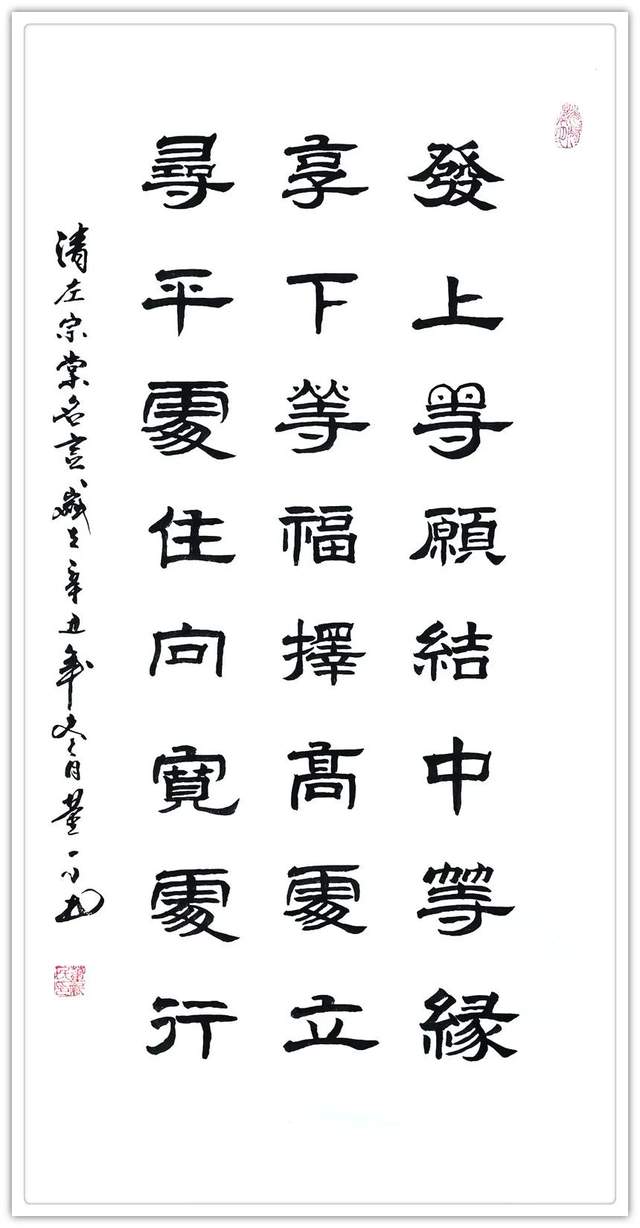 發上等願結中等緣
享下等福擇高處立
尋平處住向寬處行
清左宗棠名言歲在辛丑年冬月董一